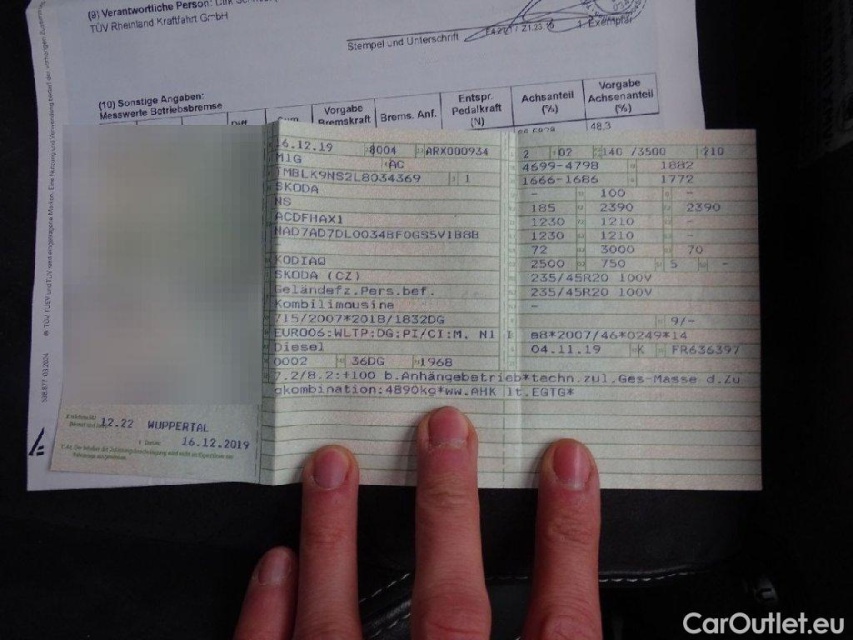 (8) Verantwortliche Person:
TÜV Rheinland Kraftfahrt GmbH
Stempel und Unterschrift
1. Exemplar
(10) Sonstige Angaben:
Messwerte Betriebsbremse
Vorgabe Bremskraft Brems. Anf. Entspr. Pedalkraft (N) Achsanteil (%) Vorgabe Achsenanteil (%)
48,3
16.12.19 8004 ARX000934
M1G AC
TMBLK9NS2L8034369 1
SKODA
NS
ACDFHAX1
NAD7AD7DL0034BF0GS5V1B8B
KODIAQ
SKODA (CZ)
Geländefz.Pers.bef.
Kombilimousine
715/2007*2018/1832DG
EURO6:WLTP:DG:PI/CI:M, N1 I
Diesel
0002 36DG 1968
7.2/8.2:+100 b.Anhängebetrieb*techn.zul.Ges-Masse d.Zu
gkombination:4890kg*ww.AHK lt.EGTG*
2 02 140 /3500 210
4699-4798 1882
1666-1686 1772
- 100 -
185 2390 2390
1230 1210 -
1230 1210 -
72 3000 70
2500 750 5 -
235/45R20 100V
235/45R20 100V
-
9/-
e8*2007/46*0249*14
04.11.19 K FR636397
12.22 WUPPERTAL
16.12.2019
CarOutlet.eu